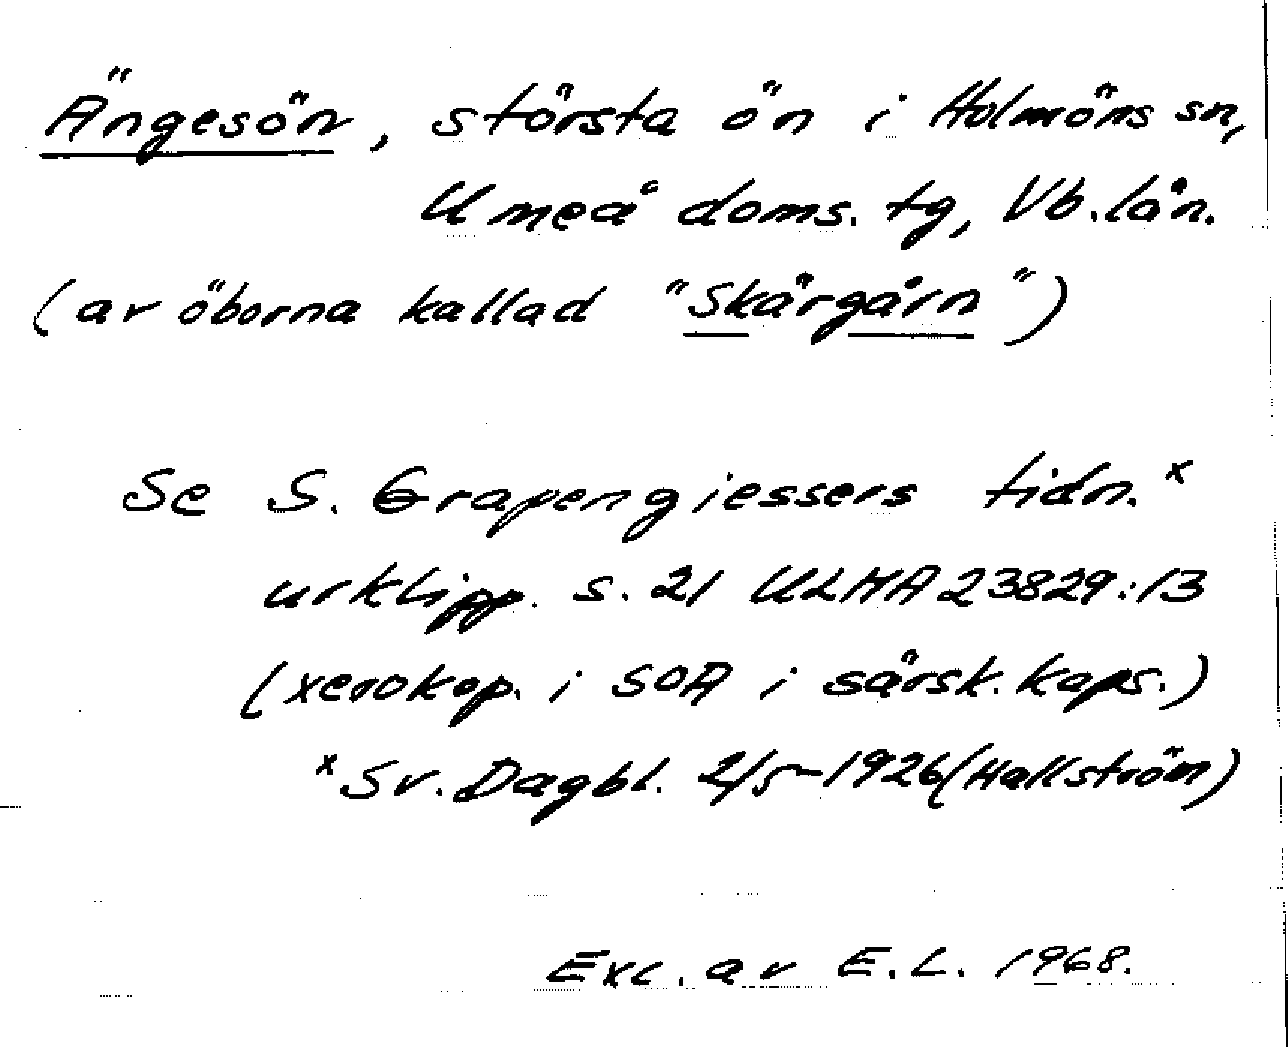 Ängesön, största ön i Holmöns sn,
Umeå doms. tg, Vb. län.
(av öborna kallad "Skärgårn")
Se S. Grapengiessers tidn.x
urklipp. s. 21 ULMA 23829:13
(xerokop. i SOA i särsk. kaps.)
x Sv. Dagbl. 2/5-1926 (Hallström)
Exc. av E.L. 1968.